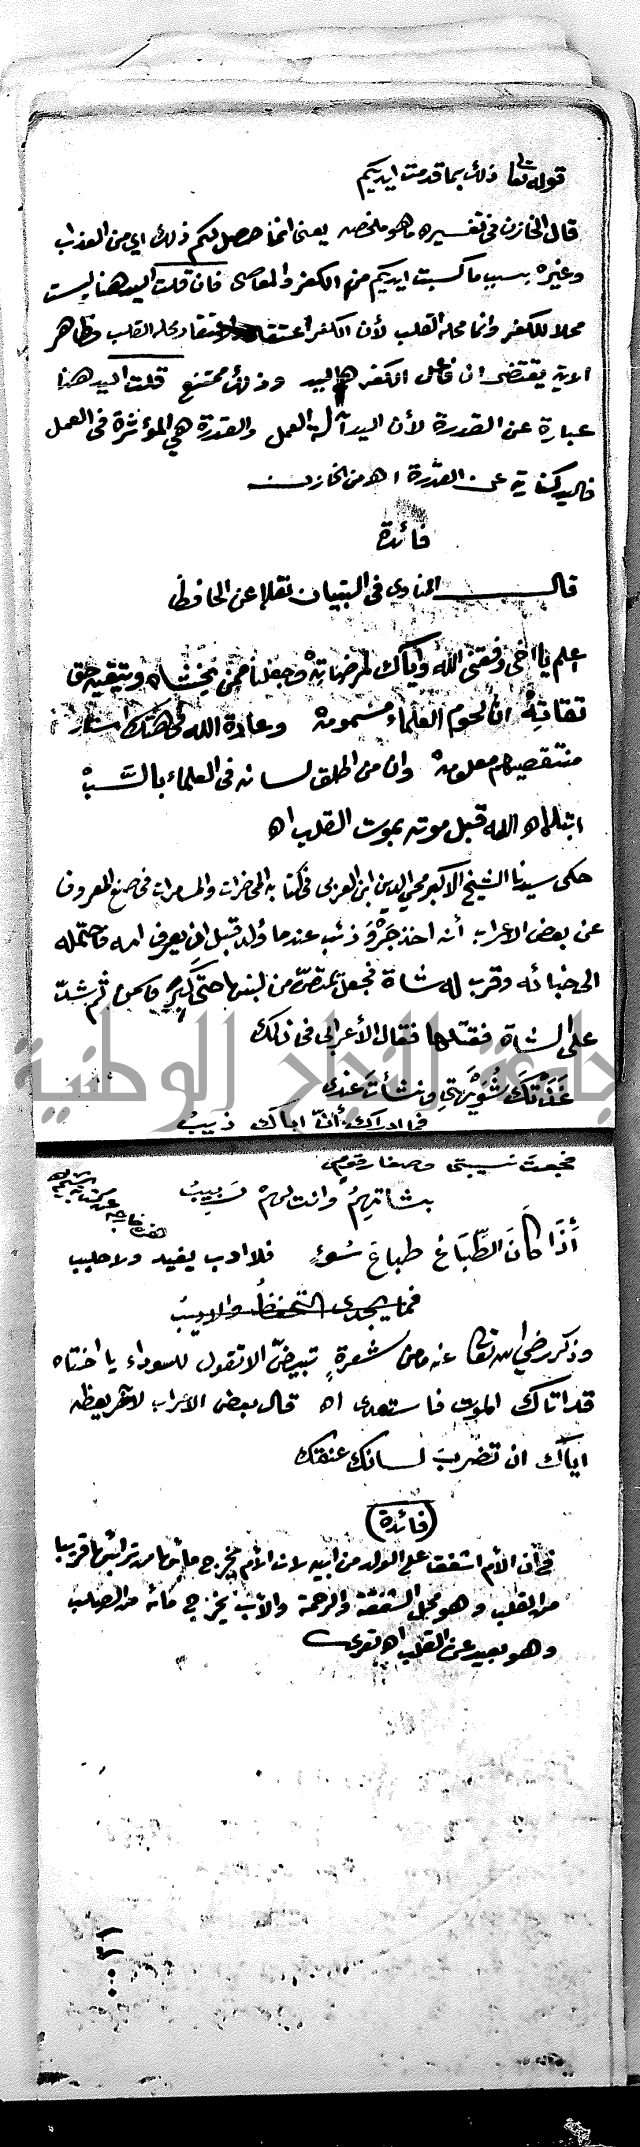 قوله تعالى ذلك بما قدمت ايديكم
قال الخازن في تفسيره ما هو ملخصه يعني انما حصل لكم ذلك اي من العذاب
وغيره بسبب ما كسبت ايديكم من الكفر والمعاصي فان قلت اليد هنا ليست
محلا للكفر وانما محله القلب لأن الكفر اعتقاد والاعتقاد محله القلب وظاهر
الاية يقتضي ان فاعل الكفر هي اليد وذلك ممتنع قلت اليد هنا
عبارة عن القدرة لأن اليد آلة العمل والقدرة هي المؤثرة في العمل
فاليد كناية عن القدرة اه من الخازن
فائدة
قال المناوي في التبيان نقلا عن الحافظ
اعلم يا اخي وفقني الله واياك لمرضاته وجعلنا ممن يخشاه ويتقيه حق
تقاته ان لحوم العلماء مسمومة وعادة الله في هتك استار
منتقصيهم معلومة وان من اطلق لسانه في العلماء بالسَّبْ
ابتلاه الله قبل موته بموت القلب اه
حكى سيدنا الشيخ الاكبر محي الدين ابن العربي في كتابه المحاضرات والمسامرات في صنع المعروف
عن بعض الاعراب أنه اخذ جَرْوَ ذئب عندما وُلد قبل ان يعرف امه فاحتمله
الى خبائه وقرب له شاة فجعل يمتصّ من لبنها حتى كبر وسمن ثم شدّ
على الشاة فقتلها فقال الأعرابي في ذلك
غَذَتْكَ شُوَيْهَتي ونشأتَ عندي
فما ادراك أنّ اباك ذيبُ
فجعت نسيبتي وصغار قومي
بشاتهمُ وانت لهمْ رَبيبُ
أذَا كَانَ الطِّبَاعُ طباعَ سُوءٍ فلا ادب يفيد ولا حليب
فما يجدي التحفظُ والاديبُ
وذكر رضي الله تعالى عنه ما من شعرةٍ تبيضّ الا تقول للسوداء يا اختاه
قد اتاك الموت فاستعدي اه قال بعض الاعراب لآخر يعظه
اياك ان تضربَ لسانك عنقك
فائدة
في أن الأم اشفق على الولد من ابيه لان الأم يخرج ماءها من ترائبها قريبا
من القلب وهو محل الشفقة والرحمة والأب يخرج مائه من الصلب
وهو بعيد عن القلب اه
جامعة النجاح الوطنية